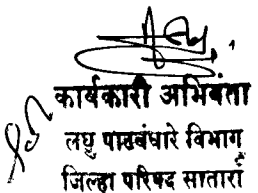 कार्यकारी अभियंता
लघु पाठबंधारे विभाग
जिल्हा परिषद सातारा